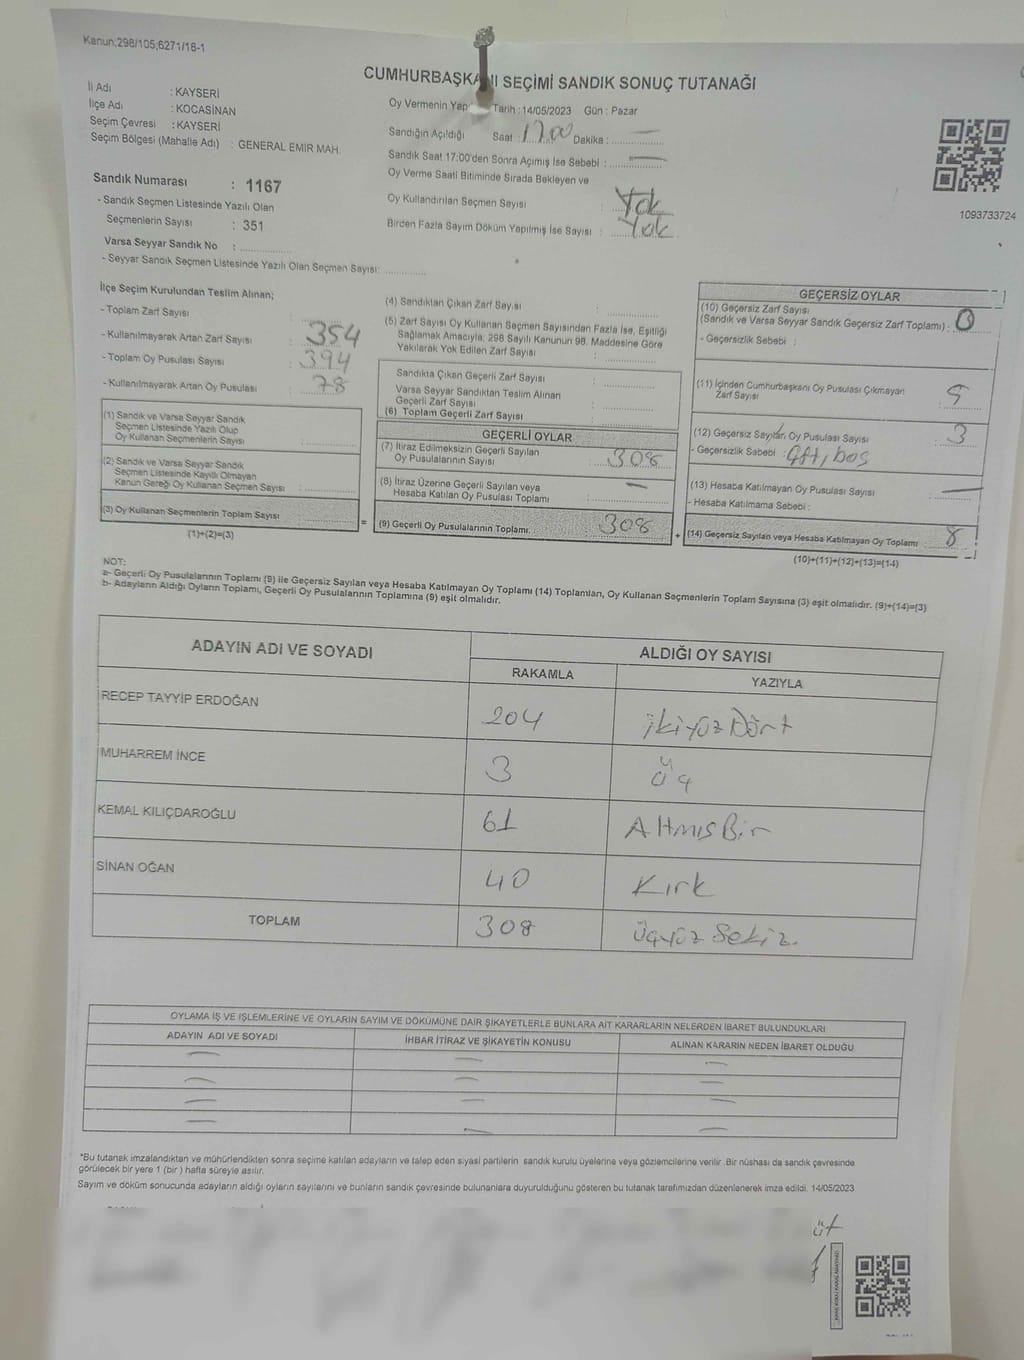 Kanun;298/105;6271/18-1
CUMHURBAŞKANI SEÇİMİ SANDIK SONUÇ TUTANAĞI
İl Adı : KAYSERİ
İlçe Adı : KOCASİNAN
Seçim Çevresi : KAYSERİ
Seçim Bölgesi (Mahalle Adı) : GENERAL EMİR MAH.
Sandık Numarası : 1167
- Sandık Seçmen Listesinde Yazılı Olan
Seçmenlerin Sayısı : 351
Varsa Seyyar Sandık No :
- Seyyar Sandık Seçmen Listesinde Yazılı Olan Seçmen Sayısı:
Oy Vermenin Yap Tarih : 14/05/2023 Gün : Pazar
Sandığın Açıldığı Saat : 17.00 Dakika : —
Sandık Saat 17:00'den Sonra Açımış İse Sebebi : —
Oy Verme Saati Bitiminde Sırada Bekleyen ve
Oy Kullandırılan Seçmen Sayısı : Yok
Birden Fazla Sayım Döküm Yapılmış İse Sayısı : Yok
1093733724
İlçe Seçim Kurulundan Teslim Alınan;
- Toplam Zarf Sayısı :
- Kullanılmayarak Artan Zarf Sayısı : 354
- Toplam Oy Pusulası Sayısı : 394
- Kullanılmayarak Artan Oy Pusulası : 78
(1) Sandık ve Varsa Seyyar Sandık
Seçmen Listesinde Yazılı Olup
Oy Kullanan Seçmenlerin Sayısı :
(2) Sandık ve Varsa Seyyar Sandık
Seçmen Listesinde Kayıtlı Olmayan
Kanun Gereği Oy Kullanan Seçmen Sayısı :
(3) Oy Kullanan Seçmenlerin Toplam Sayısı
(1)+(2)=(3)
(4) Sandıktan Çıkan Zarf Sayısı :
(5) Zarf Sayısı Oy Kullanan Seçmen Sayısından Fazla İse, Eşitliği
Sağlamak Amacıyla; 298 Sayılı Kanunun 98. Maddesine Göre
Yakılarak Yok Edilen Zarf Sayısı :
Sandıkta Çıkan Geçerli Zarf Sayısı :
Varsa Seyyar Sandıktan Teslim Alınan
Geçerli Zarf Sayısı :
(6) Toplam Geçerli Zarf Sayısı :
GEÇERLİ OYLAR
(7) İtiraz Edilmeksizin Geçerli Sayılan
Oy Pusulalarının Sayısı : 308
(8) İtiraz Üzerine Geçerli Sayılan veya
Hesaba Katılan Oy Pusulası Toplamı : —
= (9) Geçerli Oy Pusulalarının Toplamı. 308
GEÇERSİZ OYLAR
(10) Geçersiz Zarf Sayısı
(Sandık ve Varsa Seyyar Sandık Geçersiz Zarf Toplamı) : 0
- Geçersizlik Sebebi :
(11) İçinden Cumhurbaşkanı Oy Pusulası Çıkmayan
Zarf Sayısı : 5
(12) Geçersiz Sayılan Oy Pusulası Sayısı : 3
- Geçersizlik Sebebi : Çift, boş
(13) Hesaba Katılmayan Oy Pusulası Sayısı : —
- Hesaba Katılmama Sebebi :
+ (14) Geçersiz Sayılan veya Hesaba Katılmayan Oy Toplamı 8
(10)+(11)+(12)+(13)=(14)
NOT:
a- Geçerli Oy Pusulalarının Toplamı (9) ile Geçersiz Sayılan veya Hesaba Katılmayan Oy Toplamı (14) Toplamları, Oy Kullanan Seçmenlerin Toplam Sayısına (3) eşit olmalıdır. (9)+(14)=(3)
b- Adayların Aldığı Oyların Toplamı, Geçerli Oy Pusulalarının Toplamına (9) eşit olmalıdır.
ADAYIN ADI VE SOYADI ALDIĞI OY SAYISI
RAKAMLA YAZIYLA
RECEP TAYYİP ERDOĞAN 204 İkiyüz Dört
MUHARREM İNCE 3 Üç
KEMAL KILIÇDAROĞLU 61 Altmış Bir
SİNAN OĞAN 40 Kırk
TOPLAM 308 Üçyüz Sekiz.
OYLAMA İŞ VE İŞLEMLERİNE VE OYLARIN SAYIM VE DÖKÜMÜNE DAİR ŞİKAYETLERLE BUNLARA AİT KARARLARIN NELERDEN İBARET BULUNDUKLARI
ADAYIN ADI VE SOYADI İHBAR İTİRAZ VE ŞİKAYETİN KONUSU ALINAN KARARIN NEDEN İBARET OLDUĞU
— — —
— — —
— — —
— — —
*Bu tutanak imzalandıktan ve mühürlendikten sonra seçime katılan adayların ve talep eden siyasi partilerin sandık kurulu üyelerine veya gözlemcilerine verilir. Bir nüshası da sandık çevresinde
görülecek bir yere 1 (bir ) hafta süreyle asılır.
Sayım ve döküm sonucunda adayların aldığı oyların sayılarını ve bunların sandık çevresinde bulunanlara duyurulduğunu gösteren bu tutanak tarafımızdan düzenlenerek imza edildi. 14/05/2023